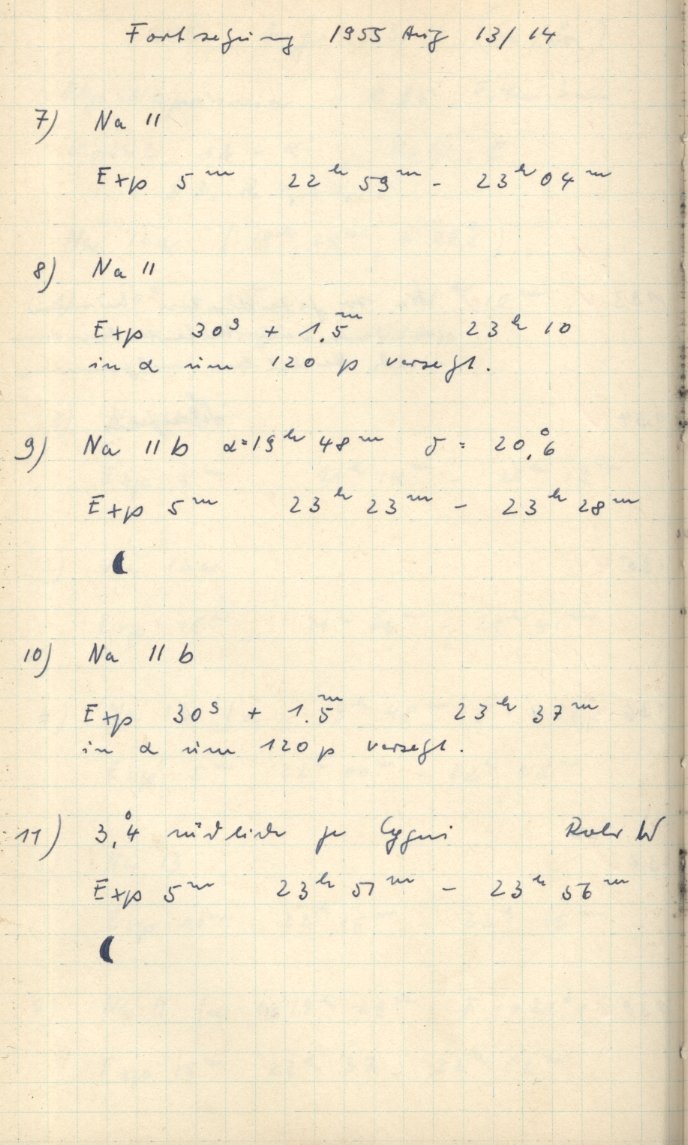 Fortsetzung 1955 Aug 13/14
7) Na 11
Exp 5ᵐ 22ʰ 59ᵐ - 23ʰ 04ᵐ
8) Na 11
Exp 30ˢ + 1,5ᵐ 23ʰ 10
in α um 120 p versetzt.
9) Na 11 b α=19ʰ 48ᵐ δ = 20,°6
Exp 5ᵐ 23ʰ 23ᵐ - 23ʰ 28ᵐ
10) Na 11 b
Exp 30ˢ + 1.5ᵐ 23ʰ 37ᵐ
in α um 120 p versetzt.
11) 3,°4 südlich γ Cygni Rohr W
Exp 5ᵐ 23ʰ 51ᵐ - 23ʰ 56ᵐ